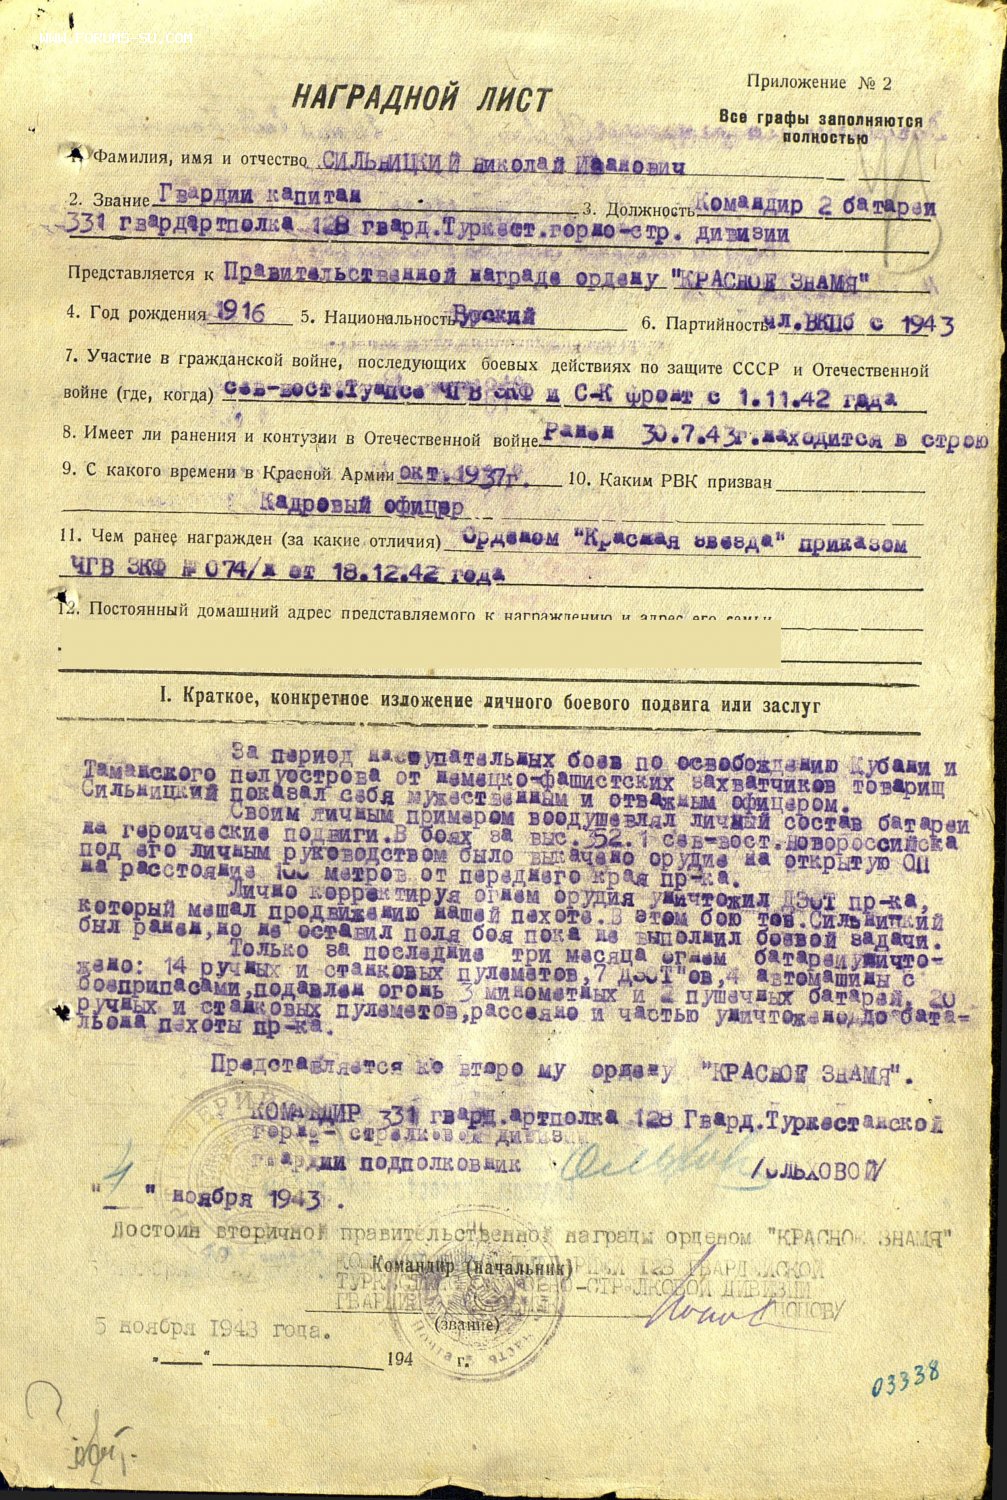 WWW.FORUMS-SU.COM
Приложение № 2
НАГРАДНОЙ ЛИСТ
Все графы заполняются
полностью
1. Фамилия, имя и отчество СИЛЬНИЦКИЙ Николай Иванович
2. Звание Гвардии капитан 3. Должность Командир 2 батареи
331 гвардартполка 128 гвард.Туркест.горно-стр. дивизии
Представляется к Правительственной награде ордену "КРАСНОЕ ЗНАМЯ"
4. Год рождения 1916 5. Национальность Русский 6. Партийность чл.ВКПб с 1943
7. Участие в гражданской войне, последующих боевых действиях по защите СССР и Отечественной
войне (где, когда) сев-вост.Туапсе ЧГВ ЗКФ и С-К фронт с 1.11.42 года
8. Имеет ли ранения и контузии в Отечественной войне Ранен 30.7.43г.находится в строю
9. С какого времени в Красной Армии окт.1937г. 10. Каким РВК призван
Кадровый офицер
11. Чем ранее награжден (за какие отличия) Орденом "Красная звезда" приказом
ЧГВ ЗКФ № 074/н от 18.12.42 года
12. Постоянный домашний адрес представляемого к награждению и адрес его семьи
I. Краткое, конкретное изложение личного боевого подвига или заслуг
За период наступательных боев по освобождению Кубани и
Таманского полуострова от немецко-фашистских захватчиков товарищ
Сильницкий показал себя мужественным и отважным офицером.
Своим личным примером воодушевлял личный состав батареи
на героические подвиги.В боях за выс.352.1 сев-вост.Новороссийска
под его личным руководством было выкачено орудие на открытую ОП
на расстояние 100 метров от переднего края пр-ка.
Лично корректируя огнем орудия уничтожил ДЗОТ пр-ка,
который мешал продвижению нашей пехоте.В этом бою тов.Сильницкий
был ранен,но не оставил поля боя пока не выполнил боевой задачи.
Только за последние три месяца огнем батареи уничто-
жено: 14 ручных и станковых пулеметов,7 ДЗОТ"ов,4 автомашины с
боеприпасами,подавлен огонь 3 минометных и 2 пушечных батарей, 20
ручных и станковых пулеметов,рассеяно и частью уничтожено до бата-
льона пехоты пр-ка.
Представляется ко второ му ордену "КРАСНОЕ ЗНАМЯ".
КОМАНДИР 331 гвард.артполка 128 Гвард.Туркестанской
горно- стрелковой дивизии
гвардии подполковник /ОЛЬХОВОЙ/
"4" ноября 1943 .
Достоин вторичной правительственной награды орденом "КРАСНОЕ ЗНАМЯ"
128 ГВАРДЕЙСКОЙ
Командир (начальник)
ТУРКЕСТАНСКОЙ ГОРНО-СТРЕЛКОВОЙ ДИВИЗИИ
ГВАРДИИ /ПОПОВ/
(звание)
5 ноября 1943 года.
"__"________194 г.
03338